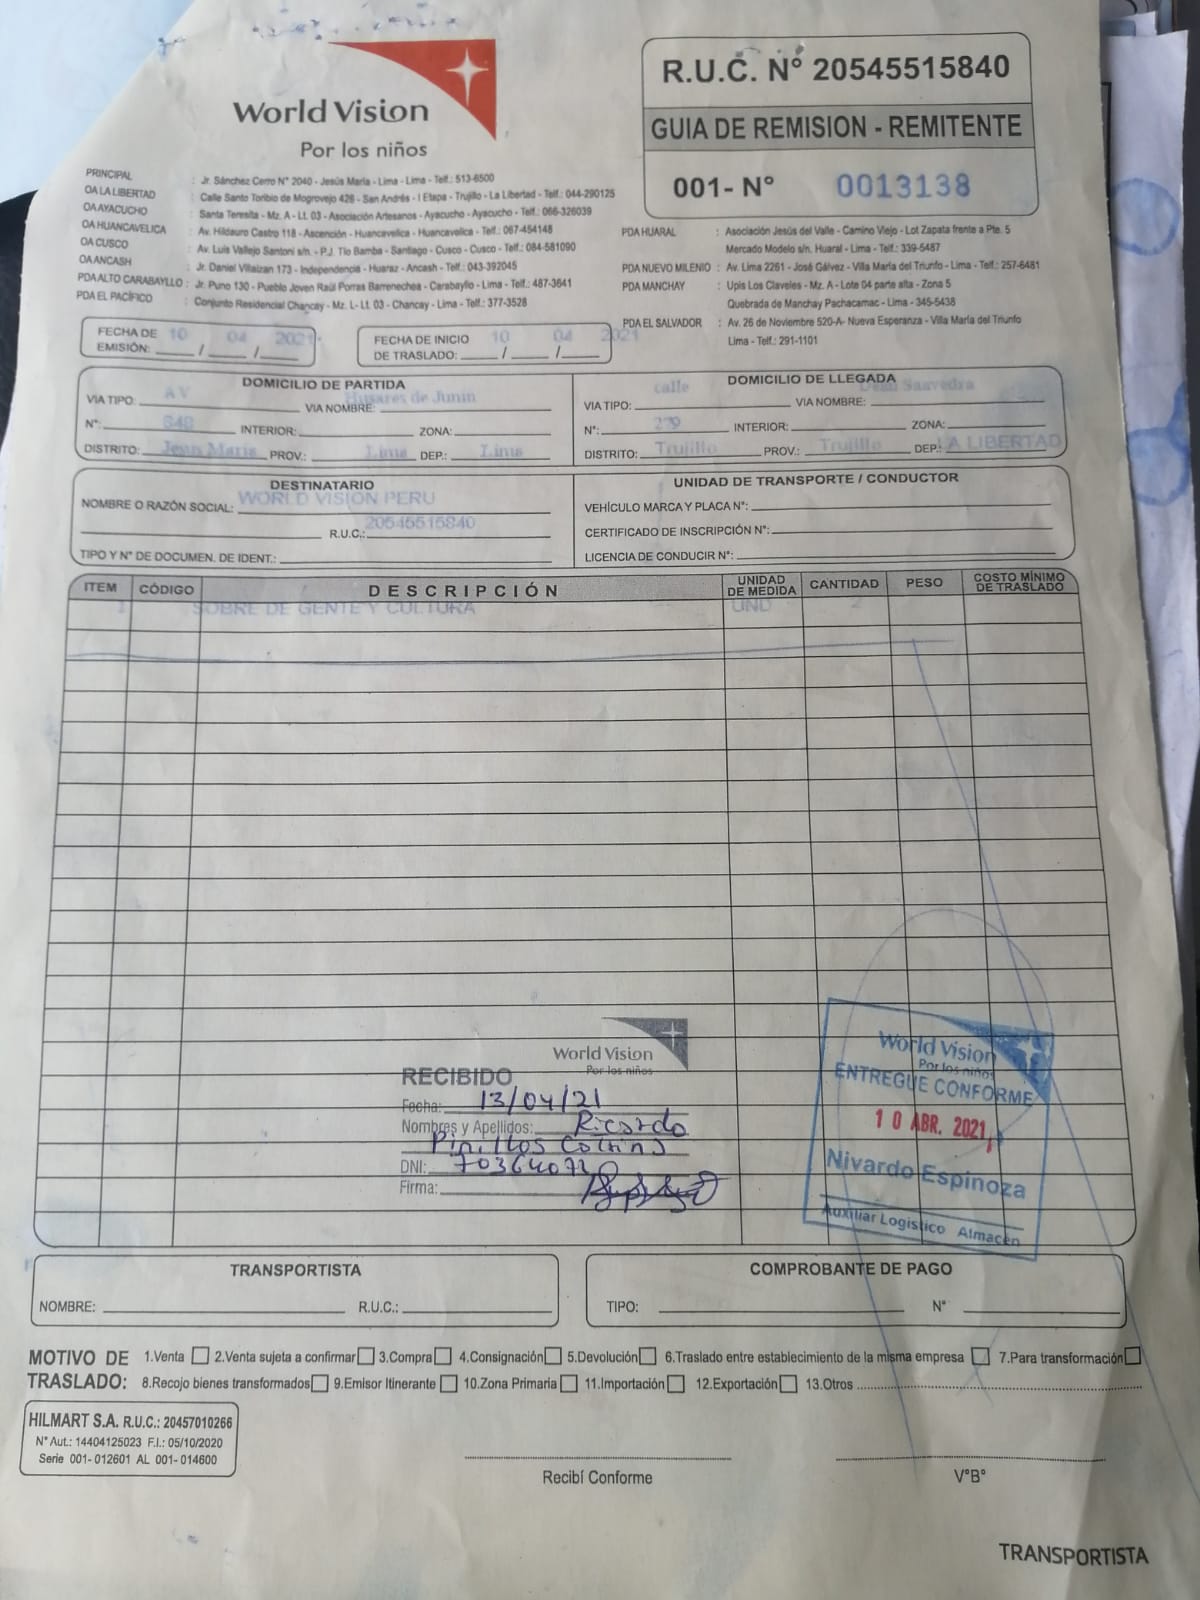 World Vision
Por los niños
R.U.C. N° 20545515840
GUIA DE REMISION - REMITENTE
001- N° 0013138
PRINCIPAL : Jr. Sánchez Cerro N° 2040 - Jesús María - Lima - Lima - Telf.: 513-6500
OA LA LIBERTAD : Calle Santo Toribio de Mogrovejo 426 - San Andrés - I Etapa - Trujillo - La Libertad - Telf: 044-290125
OA AYACUCHO : Santa Teresita - Mz. A - Lt. 03 - Asociación Artesanos - Ayacucho - Ayacucho - Telf.: 066-326039
OA HUANCAVELICA : Av. Hildauro Castro 118 - Ascención - Huancavelica - Huancavelica - Telf.: 067-454148
OA CUSCO : Av. Luis Vallejo Santoni s/n. - P.J. Tío Bamba - Santiago - Cusco - Cusco - Telf.: 084-581090
OA ANCASH : Jr. Daniel Villaizan 173 - Independencia - Huaraz - Ancash - Telf.: 043-392045
PDA ALTO CARABAYLLO : Jr. Puno 130 - Pueblo Joven Raúl Porras Barrenechea - Carabayllo - Lima - Telf.: 487-3641
PDA EL PACÍFICO : Conjunto Residencial Chancay - Mz. L - Lt. 03 - Chancay - Lima - Telf.: 377-3528
PDA HUARAL : Asociación Jesús del Valle - Camino Viejo - Lot Zapata frente a Pte. 5
Mercado Modelo s/n. Huaral - Lima - Telf.: 339-5487
PDA NUEVO MILENIO : Av. Lima 2261 - José Gálvez - Villa María del Triunfo - Lima - Telf.: 257-6481
PDA MANCHAY : Upis Los Claveles - Mz. A - Lote 04 parte alta - Zona 5
Quebrada de Manchay Pachacamac - Lima - 345-5438
PDA EL SALVADOR : Av. 26 de Noviembre 520-A- Nueva Esperanza - Villa María del Triunfo
Lima - Telf.: 291-1101
FECHA DE EMISIÓN: 10 / 04 / 2021
FECHA DE INICIO DE TRASLADO: 10 / 04 / 2021
DOMICILIO DE PARTIDA
VIA TIPO: AV VIA NOMBRE: Husares de Junin
N°: 648 INTERIOR: ZONA:
DISTRITO: Jesus Maria PROV.: Lima DEP.: Lima
DOMICILIO DE LLEGADA
VIA TIPO: calle VIA NOMBRE: Dean Saavedra
N°: INTERIOR: ZONA:
DISTRITO: Trujillo PROV.: Trujillo DEP.: LA LIBERTAD
DESTINATARIO
NOMBRE O RAZÓN SOCIAL: WORLD VISION PERU
R.U.C.: 20545515840
TIPO Y N° DE DOCUMEN. DE IDENT.:
UNIDAD DE TRANSPORTE / CONDUCTOR
VEHÍCULO MARCA Y PLACA N°:
CERTIFICADO DE INSCRIPCIÓN N°:
LICENCIA DE CONDUCIR N°:
ITEM CÓDIGO DESCRIPCIÓN UNIDAD DE MEDIDA CANTIDAD PESO COSTO MÍNIMO DE TRASLADO
1 SOBRE DE GENTE Y CULTURA UND 2
World Vision
Por los niños
RECIBIDO
Fecha: 13/04/21
Nombres y Apellidos: Ricardo
Pinillos
DNI: 70364072
Firma:
World Vision
Por los niños
ENTREGUE CONFORME
10 ABR. 2021
Nivardo Espinoza
Auxiliar Logístico Almacén
TRANSPORTISTA
NOMBRE: R.U.C.:
COMPROBANTE DE PAGO
TIPO: N°
MOTIVO DE TRASLADO: 1.Venta 2.Venta sujeta a confirmar 3.Compra 4.Consignación 5.Devolución 6.Traslado entre establecimiento de la misma empresa 7.Para transformación
8.Recojo bienes transformados 9.Emisor Itinerante 10.Zona Primaria 11.Importación 12.Exportación 13.Otros
HILMART S.A. R.U.C.: 20457010266
N° Aut.: 14404125023 F.I.: 05/10/2020
Serie 001- 012601 AL 001- 014600
Recibí Conforme
V°B°
TRANSPORTISTA